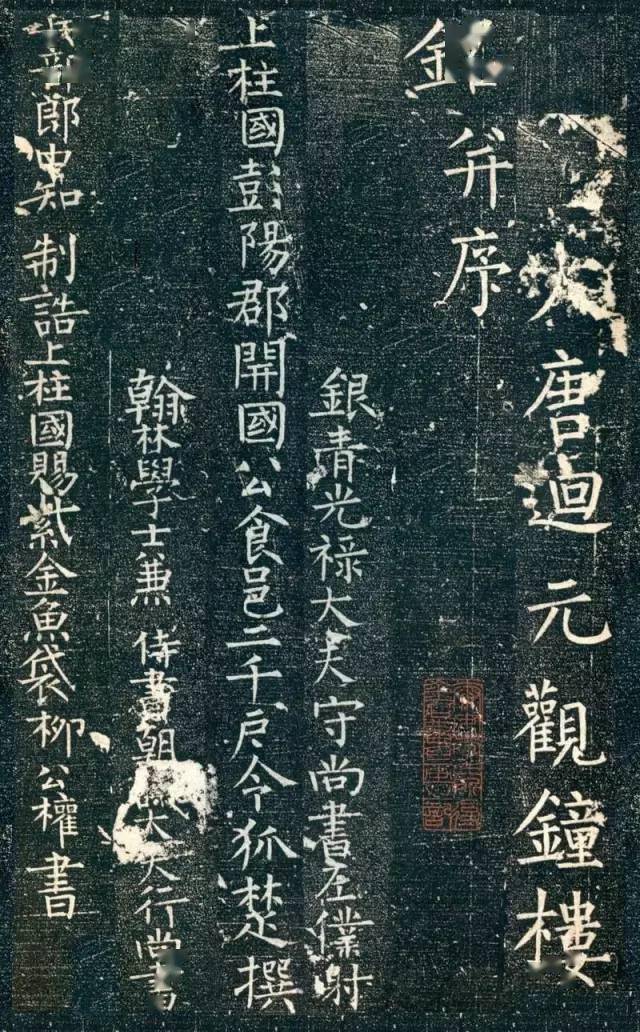 大唐迴元觀鐘樓
銘并序
銀青光禄大夫守尚書左僕射
上柱國彭陽郡開國公食邑二千戶令狐楚撰
翰林學士兼侍書朝大夫行尚書
兵部郎中知制誥上柱國賜紫金魚袋柳公權書